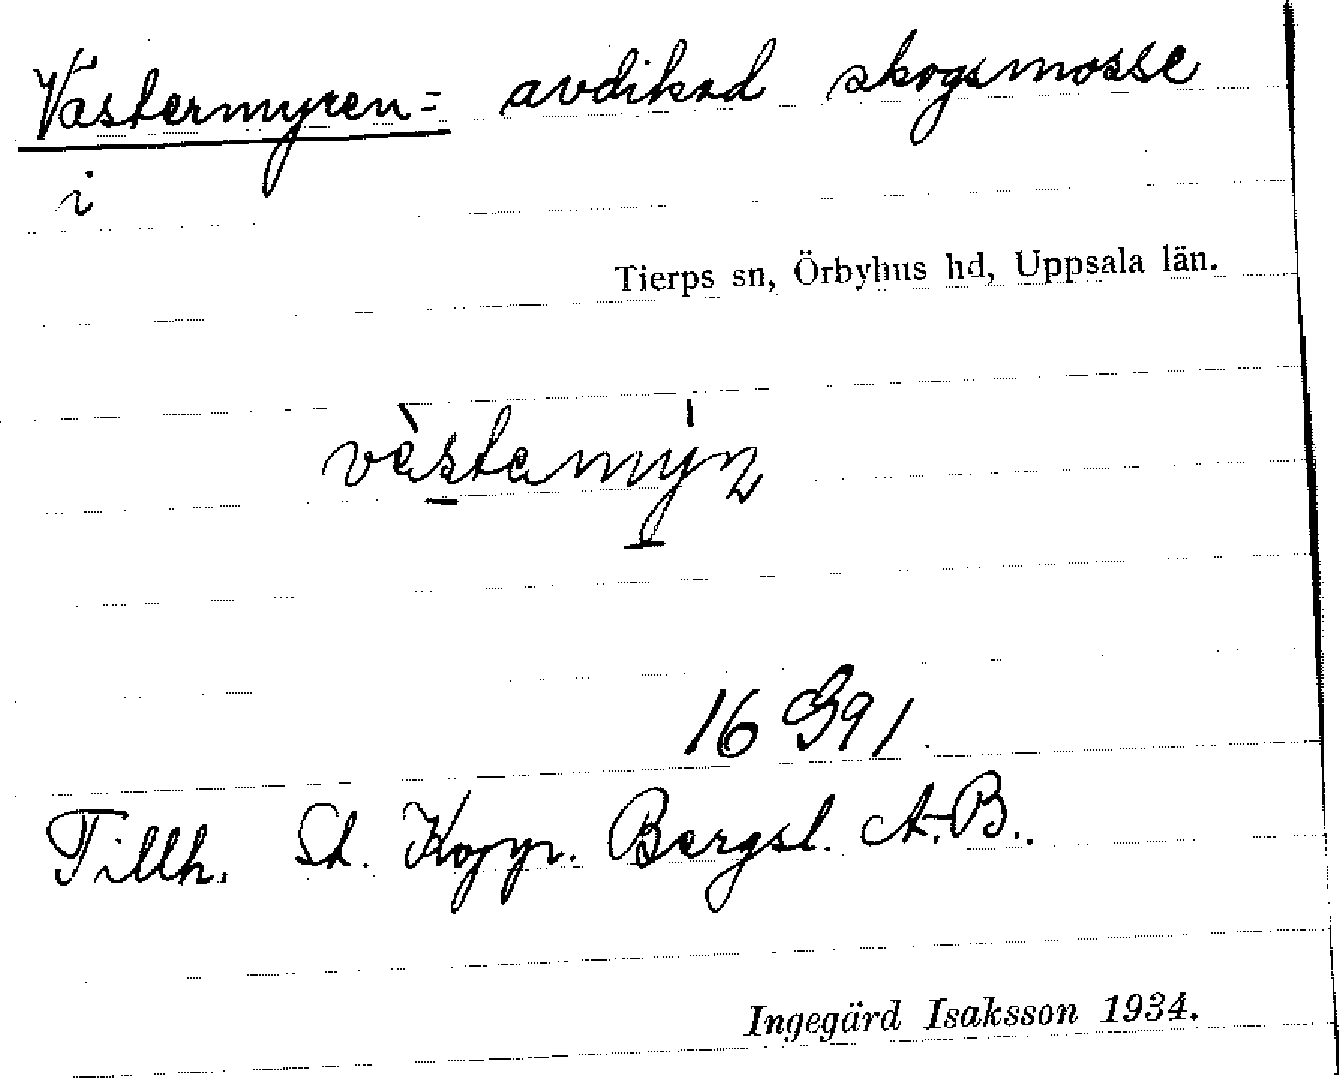 Västermyren = avdikad skogsmosse
i
Tierps sn, Örbyhus hd, Uppsala län.
vèstemýn
16 G 9 1
Tillh. St. Kopp. Bergsl. A.-B.
Ingegärd Isaksson 1934.